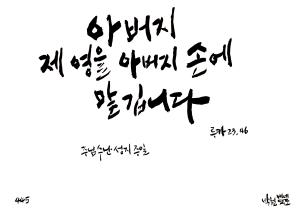 아버지
제 영을 아버지 손에
맡깁니다
루카 23,46
주님 수난 성지 주일
445